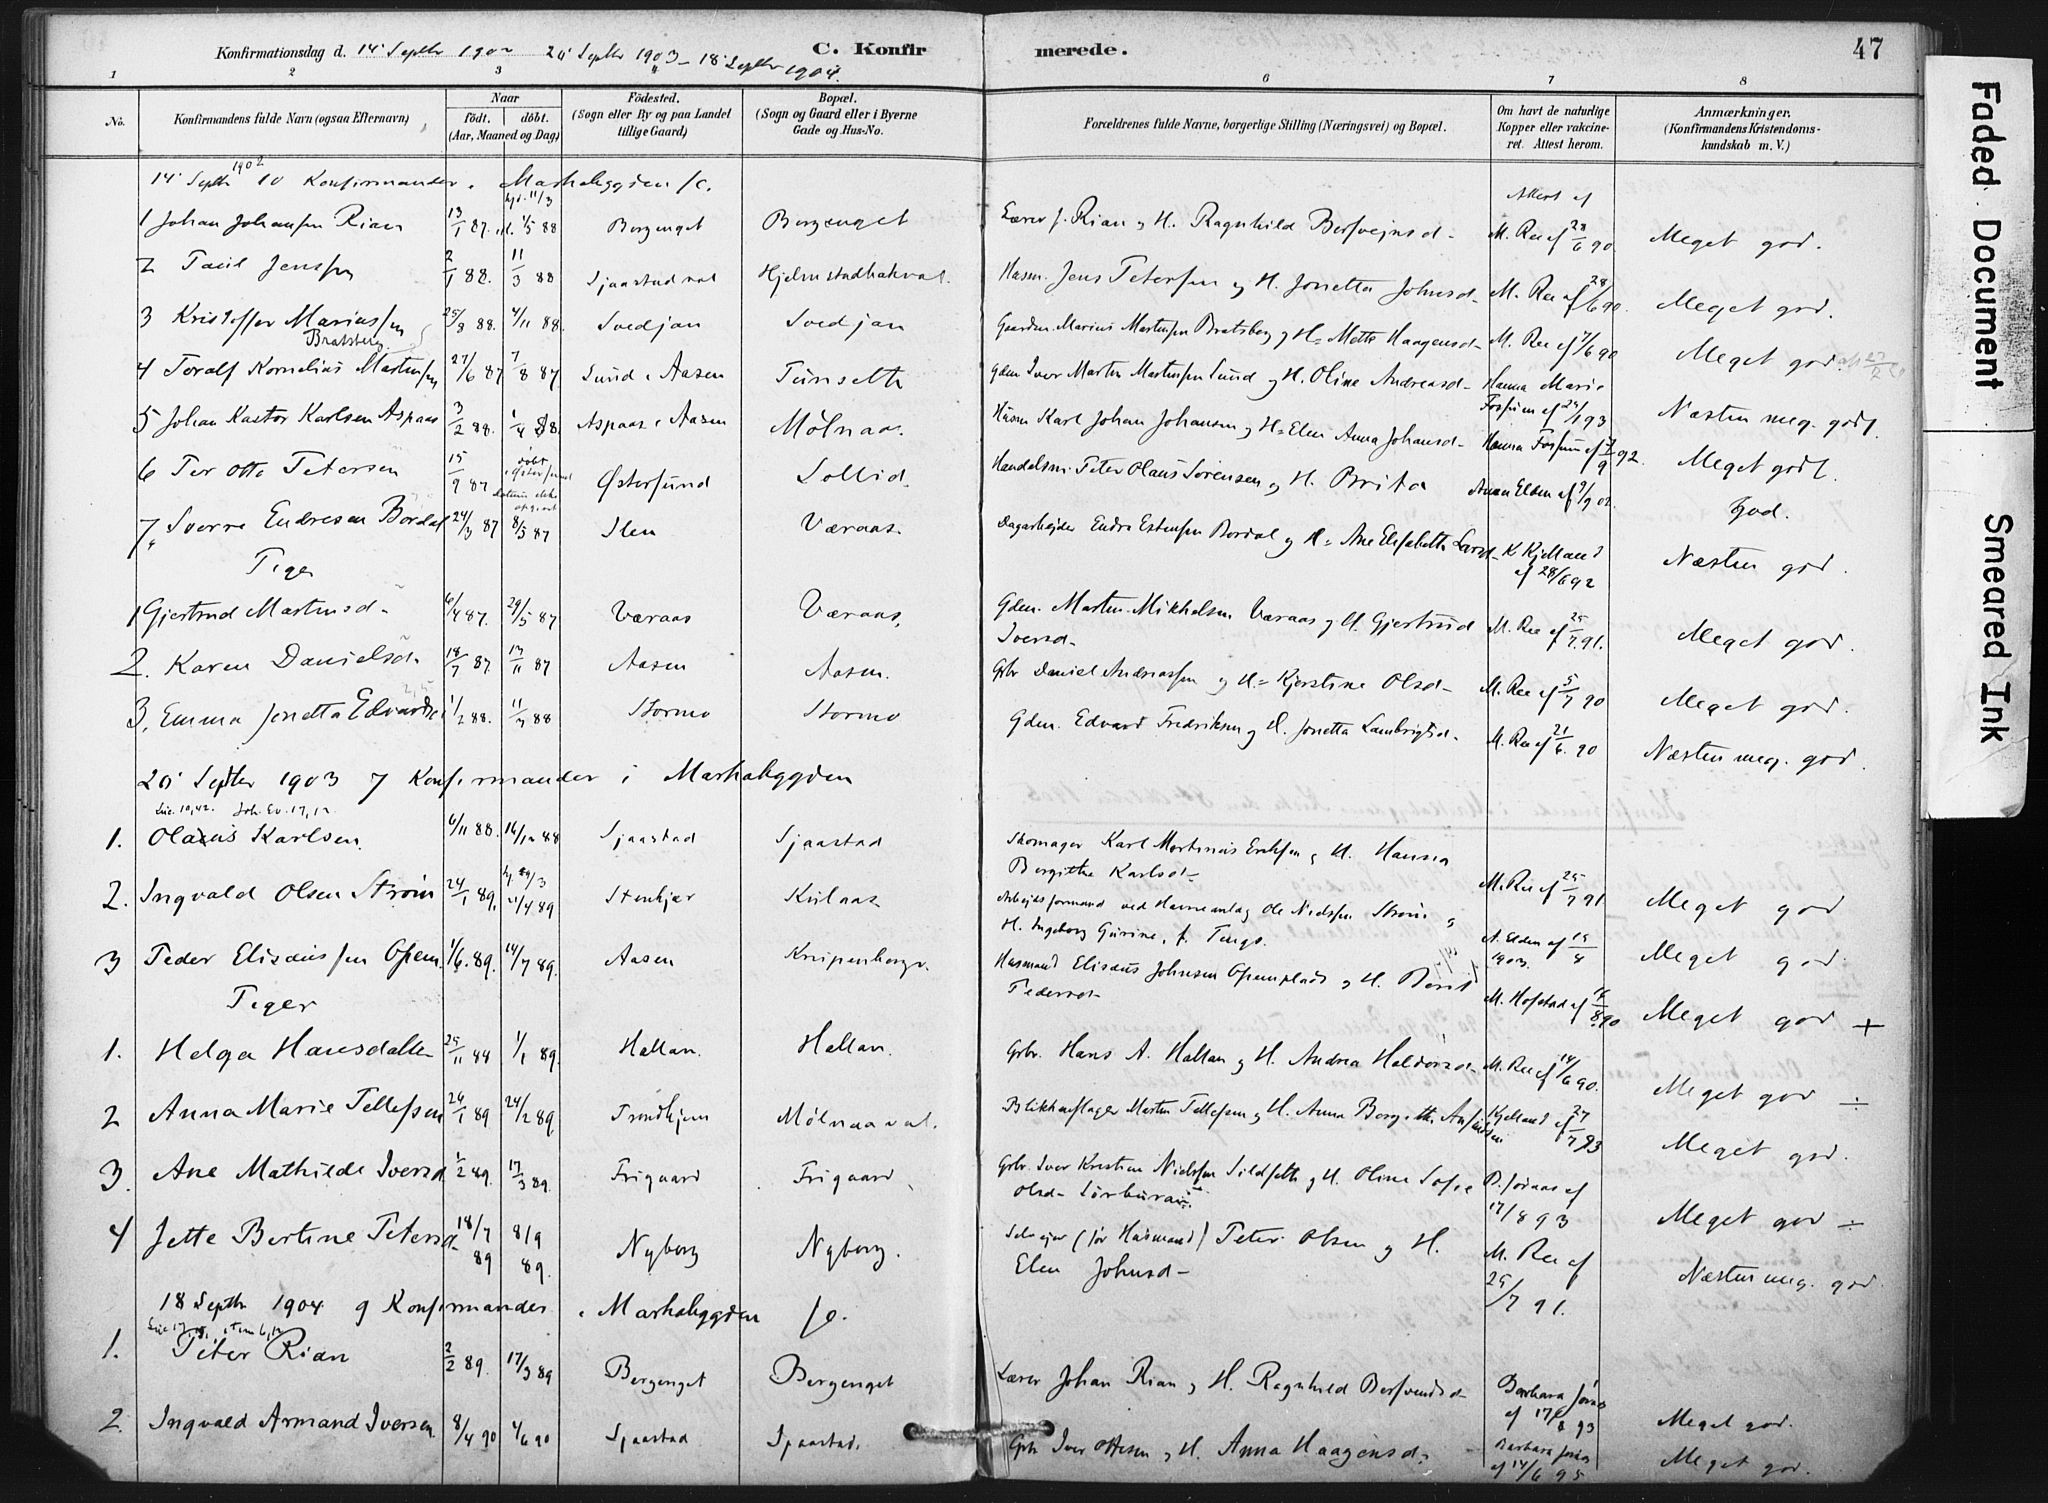 Konfirmationsdag d. 14' Septbr 1902 20' Septbr 1903 - 18' Septbr 1904.
C. Konfirmerede.
47
1 2 3 6 7 8
No.
Konfirmandens fulde Navn (ogsaa Efternavn)
Naar
født. døbt.
(Aar, Maaned og Dag)
Fødested.
(Sogn eller By og paa Landet tillige Gaard)
Bopæl.
(Sogn og Gaard eller i Byerne Gade og Hus-No.
Forældrenes fulde Navne, borgerlige Stilling (Næringsvei) og Bopæl.
Om havt de naturlige Kopper eller vakcineret. Attest herom.
Anmærkninger.
(Konfirmandens Kristendomskundskab m. V.)
14' Septbr 1902 10 Konfirmander i Markabygden
1 Johan Johansen Rian 13/1 87. 1/5 88 Bergenget Bergenget Lærer J. Rian og H. Ragnhild Bersvejnsd- Attest af M. Ree af 28/6 90 Meget god.
2 Paul Jenssen 2/1 88. 11/3 88 Sjaastadval Hjelmstadbakval. Husm. Jens Petersen og H. Jonetta Johnsd- M. Ree af 28/6 90. Meget god.
3 Kristoffer Mariussen Bratsberg 25/8 88. 4/11 88. Svedjan Svedjan Gaardm. Marius Martinsen Bratsberg og H= Mette Haagensd- M. Ree af 7/6 90 Meget god.
4 Toralf Kornelius Martinsen 27/6 87 7/8 87 Lund i Aasen Tunseth Gdm Iver Martin Martinsen Lund og H. Oline Andreasd- Hanna Marie Fossum af 24/1 93 Næsten meg. godt.
5 Johan Kastor Karlsen Aspaas 3/2 88. 1/4 88. Aspaas i Aasen Mølnaas. Husm Karl Johan Johansen og H= Elen Anna Johansd- Hanna Fossum af 7/9 92. Meget godt.
6 Per Otto Petersen 15/9 87 døbt i Østersund datum ikke opgivet Østersund Sollid. Handelsm. Peter Olaus Sørensen og H. Brita Anna Elden af 9/9 02. God.
7 Sverre Endresen Bordal 24/3 87 8/5 87 Ilen Væraas. Dagarbejder Endre Estensen Bordal og H= Ane Elisabeth Larsd- K Kjelland af 28/6 92 Næsten god.
Piger
1 Gjertrud Martinsd- 6/4 87. 29/5 87 Væraas Væraas. Gdm. Martin Mikkelsen Væraas og H. Gjertrud Iversd- M. Ree af 25/7. 91. Meget god.
2. Karen Danielsd- 18/7 87 13/11 87 Aasen Aasen. Gbr Daniel Andreassen og H= Kjerstine Olsd- M. Ree af 5/7 90 Meget god.
3. Emma Jonetta Edvardsd 1/2 88. 11/3 88 Stormo Stormo Gdm. Edvard Fredriksen og H. Jonetta Lambrigtsd- M. Ree af 21/6. 90 Næsten meg. god.
20' Septbr 1903 7 Konfirmander i Markabygden
Luc. 10,42. Joh. Ev. 17,12.
1. Olaus Karlsen 6/11 88. 16/12 88 Sjaastad Sjaastad Skomager Karl Martinus Eriksen og H. Hansa Bergithe Karlsd- M. Ree af 25/7 91 Meget god
2. Ingvald Olsen Strøm 24/1 89. 21/4 89 Stenkjær Kulaas Arbejdsformand ved Havneanlæg Ole Nielssen Strøm og H. Ingeborg Gurine, f. A. Elden af 15/8 1903. Meget god
3 Peder Elisæussen Opem 1/6. 89. 14/7 89. Aasen Knipenberg. Husmand Elisæus Johnsen Opemplads og H. Berit Pedersd- M. Hofstad af 16/8. 90 Meget god +
Piger
1. Helga Hansdatter 25/11 88 1/1 89. Hallan. Hallan. Gbr. Hans A. Hallan og H. Andrea Haldorsd- M. Ree af 14/6 90. Meget god ÷
2 Anna Marie Tellefsen 26/1 89 24/2 89. Trondhjem Mølnaaval. Blikkenslager Martin Tellefsen og H. Anna Bergithe Kjelland af 27/7 93 Meget god.
3. Ane Mathilde Iversd 1/2 89. 17/3 89. Frigaard Frigaard Gbr. Iver Kristian Nielssen Sildseth og H. Oline Sofie Olsd- P. Joraas af 17/8 93 Meget god ÷
4 Jette Bertine Petersd- 18/7 89 8/9 89. Nyborg Nyborg. Selvejer (før Husmand) Peter Olsen og H. Elen Johnsd- M. Ree af 25/7 91. Næsten meg. god
18 Septbr 1904 9 Konfirmander i Markabygden
1. Peter Rian 2/2 89. 17/3 89 Bergenget Bergenget Lærer Johan Rian og H. Ragnhild Bersvendsd- Barbara af 17/8 93 Meget god.
2. Ingvald Armand Iversen 8/4 90 4/6 90 Sjaastad Sjaastad. Gbr Iver Ottesen og H. Anna Haagensd- Barbara af 14/6 95 Meget god.
Faded Document
Smeared Ink